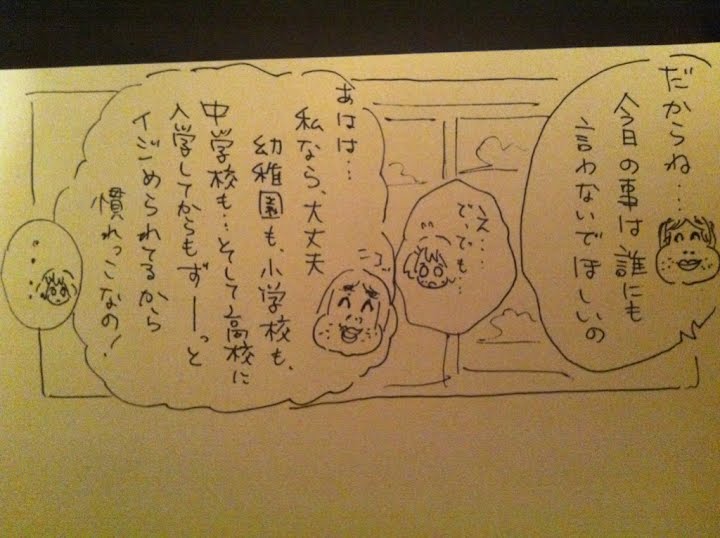 だからね…
今日の事は誰にも
言わないでほしいの
え…
で、でも…
あはは…
私なら、大丈夫
ニコッ
幼稚園も、小学校も、
中学校も…そして高校に
入学してからもずーっと
イジめられてるから
慣れっこなの!
…